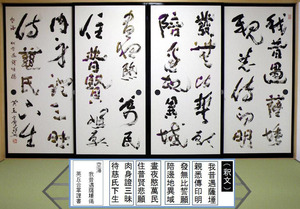 我昔遇薩埵
親悉傳印明
發無比誓願
陪邊地異域
晝夜愍萬民
住普賢悲願
肉身證三昧
待慈氏下生
(釈文)
我昔遇薩埵
親悉傳印明
發無比誓願
陪邊地異域
晝夜愍萬民
住普賢悲願
肉身證三昧
待慈氏下生
我昔遇薩埵偈